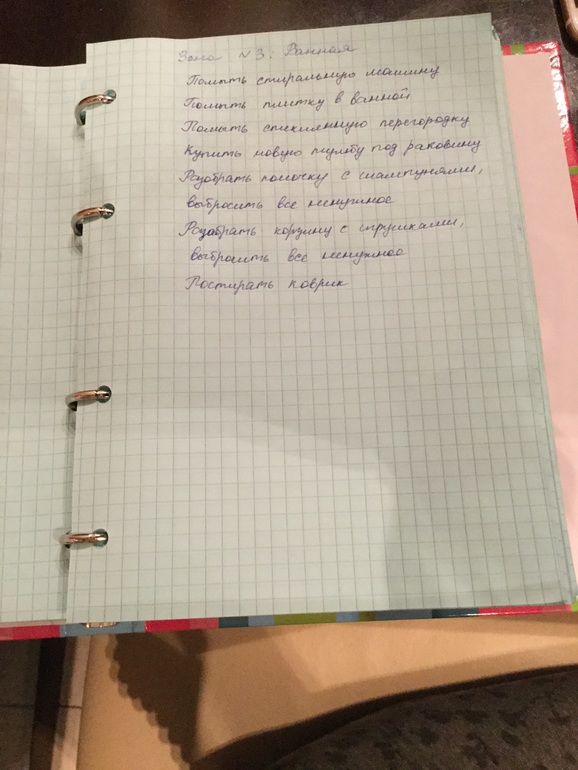 Зона №3: Ванная
Помыть стиральную машину
Помыть плитку в ванной
Помыть стеклянную перегородку
Купить новую тумбу под раковину
Разобрать полочку с шампунями,
выбросить все ненужное
Разобрать корзину с игрушками,
выбросить все ненужное
Постирать коврик